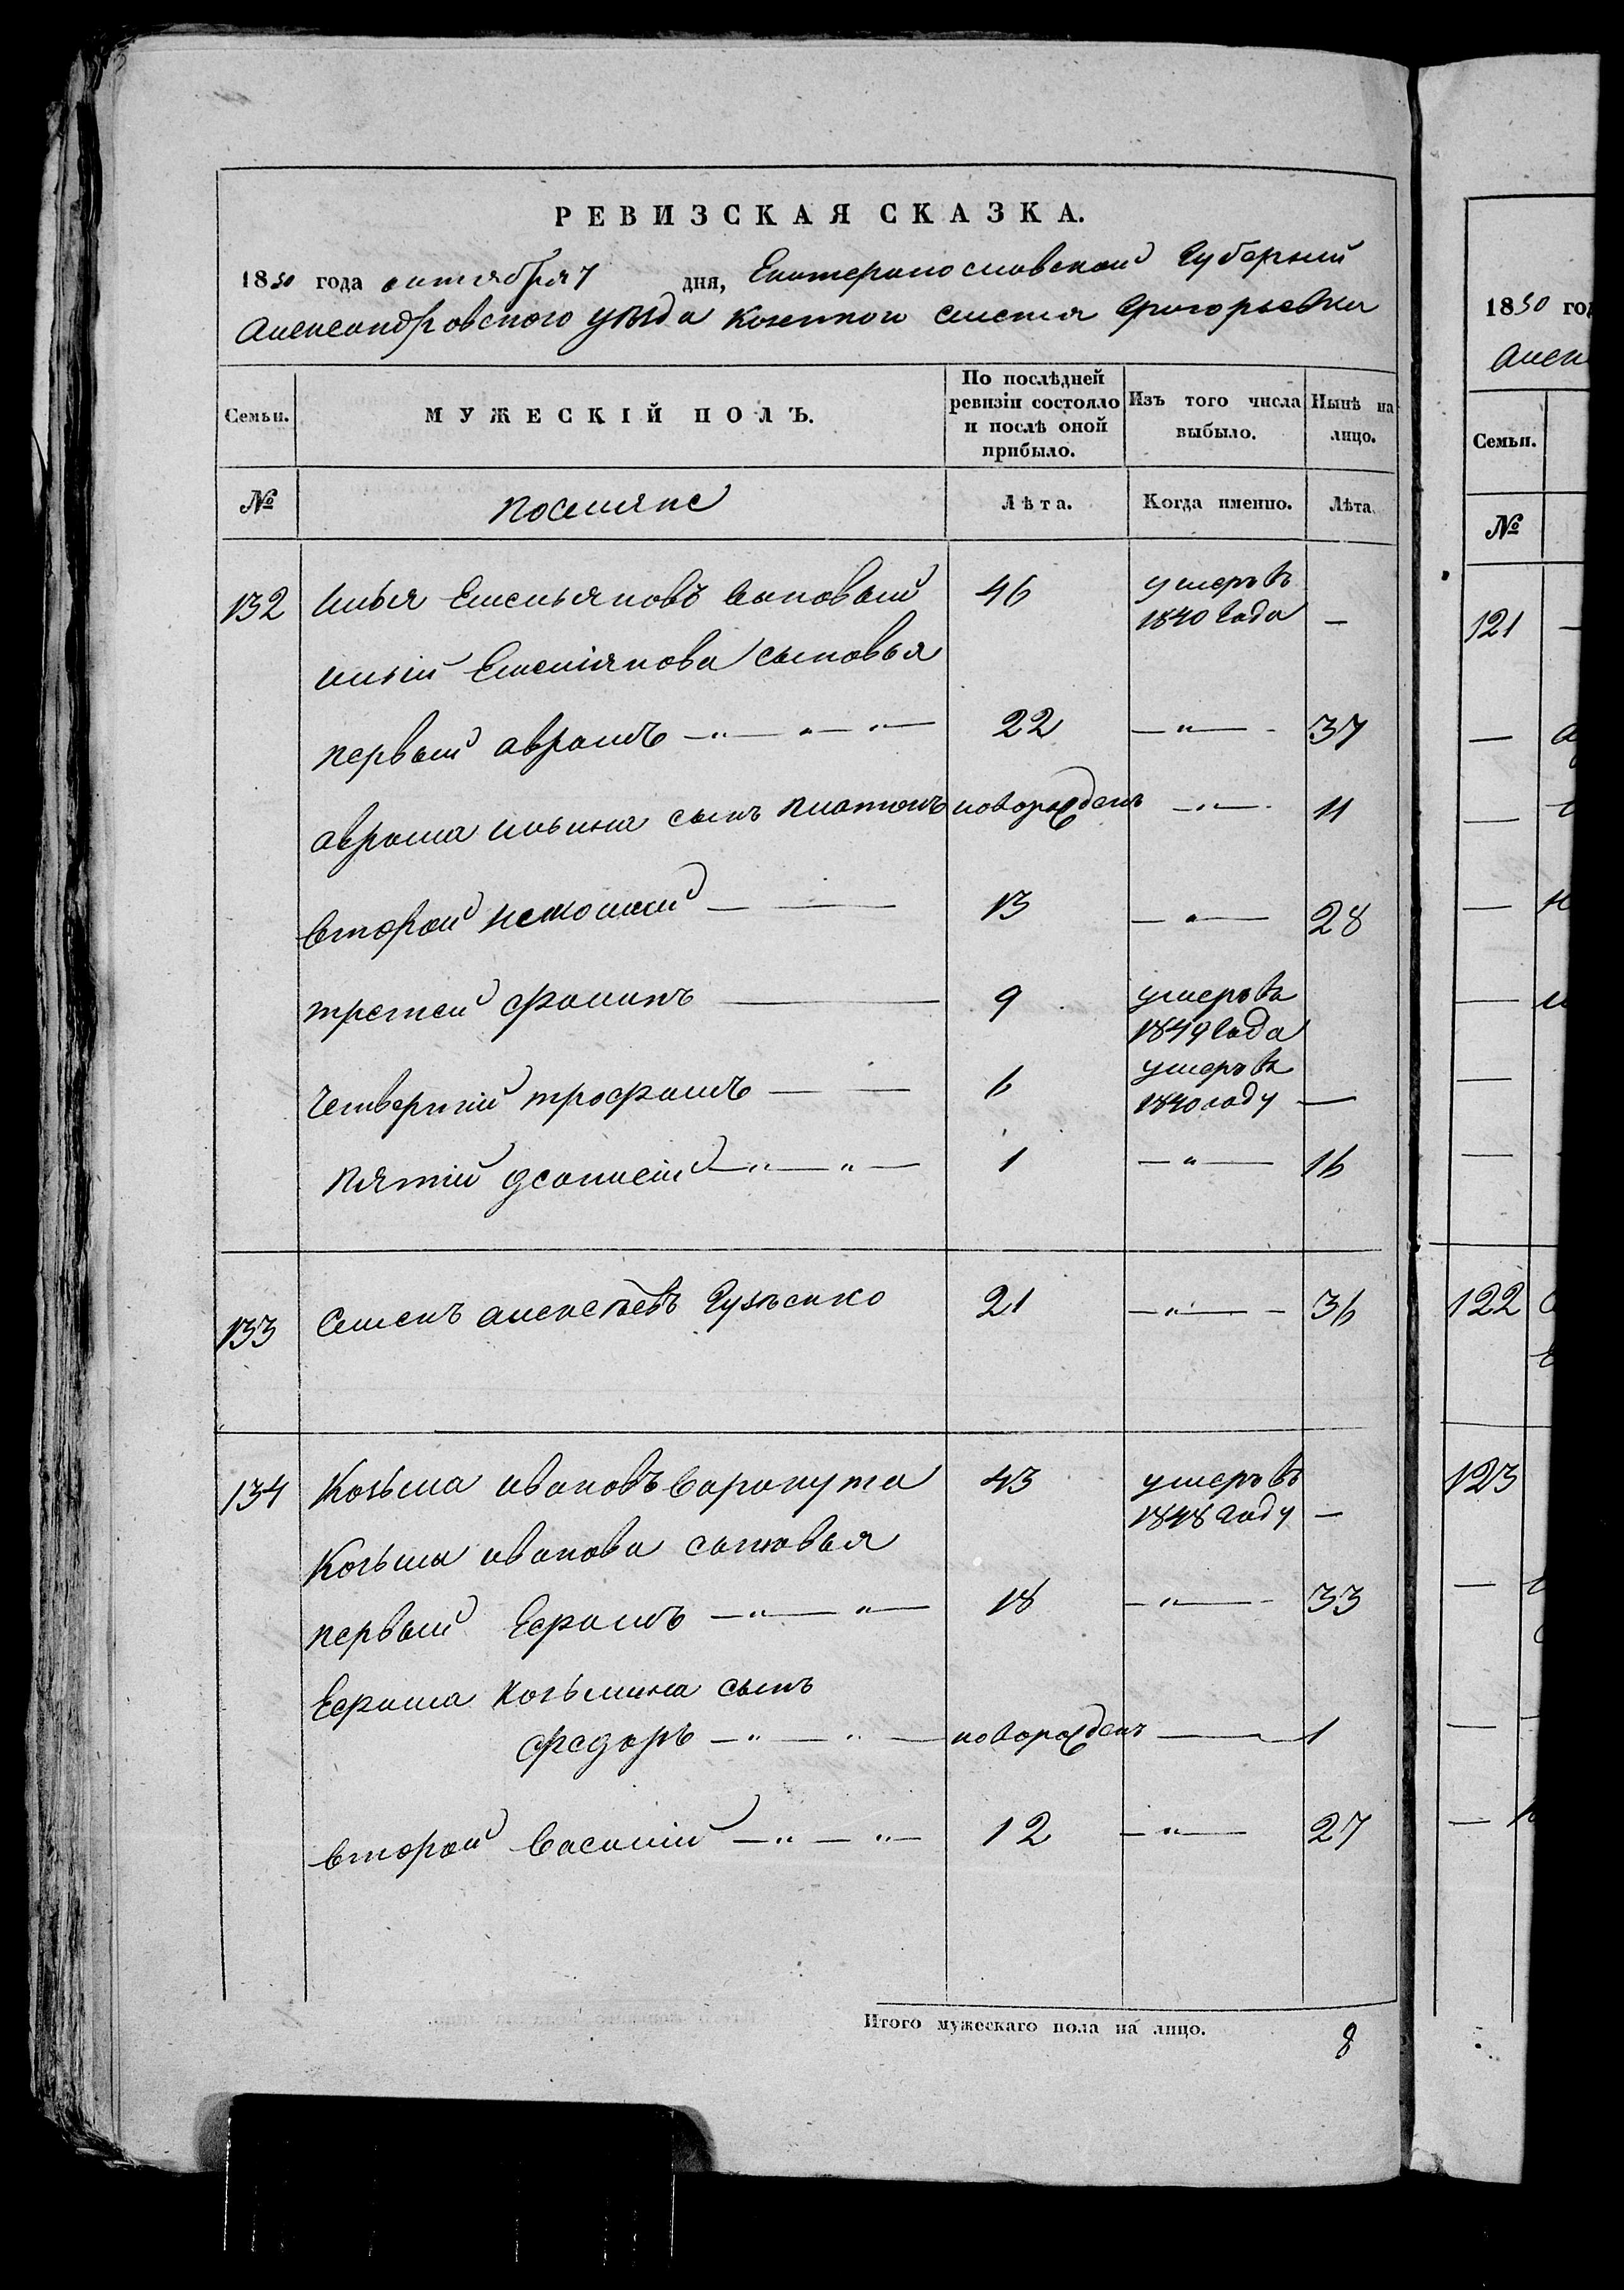 РЕВИЗСКАЯ СКАЗКА.
1850 года октября 7 дня, Екатеринославской Губернии
Александровского уѣзда Козенного Григорьевки
Семьи. МУЖЕСКІЙ ПОЛЪ. По послѣдней ревизіи состояло и послѣ оной прибыло. Изъ того числа выбыло. Нынѣ на лицо.
№ поселяне Лѣта. Когда именно. Лѣта.
132 Илья Емельяновъ 46 умеръ въ 1840 года —
Ильи Емеліянова сыновья
первый аврамъ 22 — 37
аврама ильина сынъ платонъ новорожденъ — 11
второй 13 — 28
третей филипъ 9 умеръ въ 1849 года
четвертій трофимъ 6 умеръ въ 1840 году —
пятій 1 — 16
133 Семенъ алексѣевъ 21 — 36
134 Козьма ивановъ 43 умеръ въ 1848 году —
Козьмы иванова сыновья
первый Ефримъ 18 — 33
Ефрима Козьмина сынъ
федоръ новорожденъ — 1
второй Василій 12 — 27
Итого мужескаго пола на лицо. 8
1850 год
Алек
Семьи.
№
121
122
123